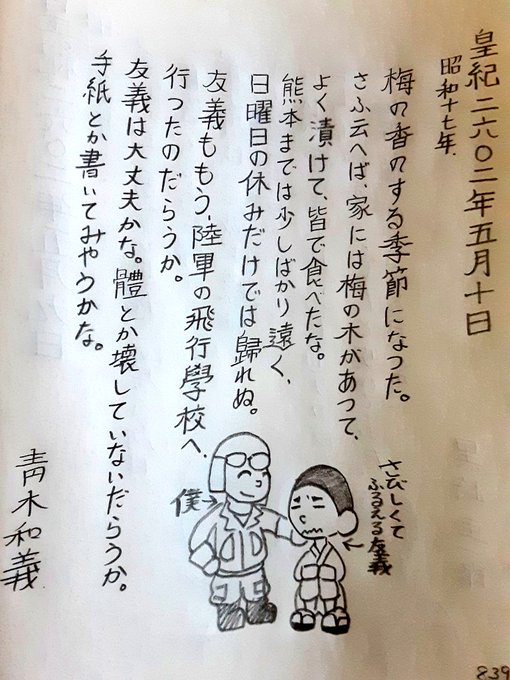 皇紀二六〇二年五月十日
昭和十七年
梅の香のする季節になつた。
さふ云へば、家には梅の木があつて、
よく漬けて、皆で食べたな。
熊本までは少しばかり遠く、
日曜日の休みだけでは歸れぬ。
友義ももう、陸軍の飛行學校へ、
行つたのだらうか。
友義は大丈夫かな。體とか壊していないだらうか。
手紙とか書いてみやうかな。
青木和義
僕
さびしくて
ふるえる友義
839